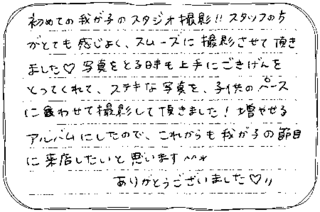 初めての我が子のスタジオ撮影!! スタッフの方
がとても感じよく、スムーズに撮影させて頂き
ました♡ 写真をとる時も上手にごきげんを
とってくれて、ステキな写真を、子供のペース
に合わせて撮影して頂きました! 増やせる
アルバムにしたので、これからも我が子の節目
に来店したいと思います^^*
ありがとうございました♡〃